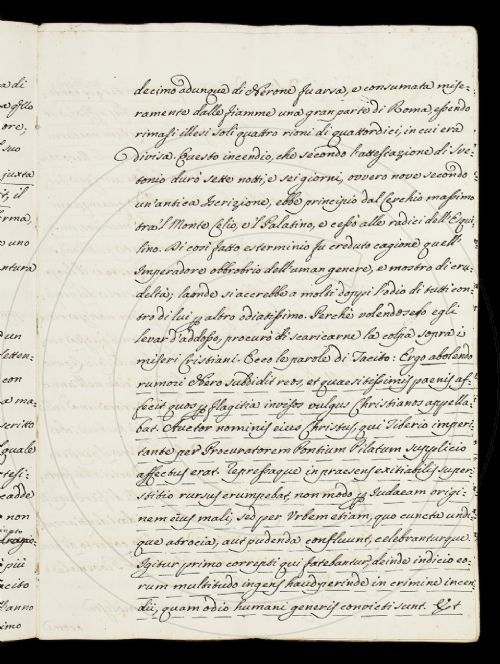 a di
a qsllo
ore,
l suo
juxta
rit, il
ferma,
e uno
ntura
d un
letten=
con
a ma=
scritto
quale
rtesi=
cadde
non
più
Tacito
l'anno
simo
decimo adunque di Nerone fu arsa, e consumata mise=
ramente dalle fiamme una gran parte di Roma, essendo
rimasi illesi soli quattro rioni di quattordici, in cui era
divisa. Questo incendio, che secondo l'attestazione di Sve=
tonio durò sette notti, e sei giorni, ovvero nove secondo
un'antica Iscrizione, ebbe principio dal Cerchio massimo
tra'l Monte Celio, e'l Palatino, e cessò alle radici dell'Esqui
lino. Di così fatto esterminio fu creduto cagione quell'
Imperadore obbrobrio dell'uman genere, e mostro di cru=
deltà; laonde si acerebbe a molti doppj l'odio di tutti con=
tro di lui p altro odiatissimo. Perchè volendoselo egli
levar d'addosso, procurò di scaricarne la colpa sopra i
miseri Cristiani. Ecco le parole di Tacito: Ergo abolendo
rumori Nero subdidit reos, et quaesitissimis paenis af=
fecit quos p flagitia invisos vulgus Christianos appella=
bat. Auctor nominis eius Christus, qui Tiberio imperi=
tante per Procuratorem Pontium Pilatum supplicio
affectus erat. Repressaque in praesens exitiabilis super=
stitio rursus erumpebat, non modo p Judaeam origi=
nem eius mali, sed per Urbem etiam, quo cuncta undi=
que atrocia, aut pudenda confluunt, celebranturque.
Igitur primo correpti qui fatebantur, deinde indicio eo=
rum multitudo ingens haud perinde in crimine incen
dii, quam odio humani generis convicti sunt. Et